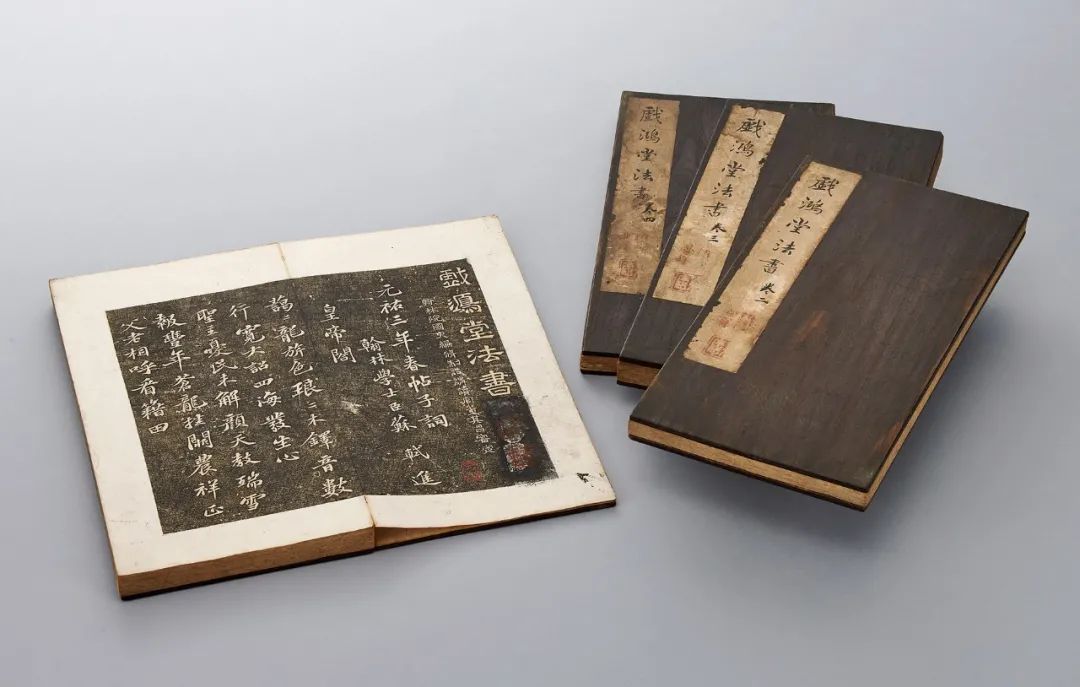 戲鴻堂法書
元祐三年春帖子詞
翰林學士臣蘇 軾進
皇帝閤
龍旂色琅〻木鐸音數
行寬大詔四海發生心
聖主憂民未解顏天教瑞雪
報豐年蒼龍挂闕農祥正
父老相呼看籍田
戲鴻堂法書 卷四
戲鴻堂法書 卷三
戲鴻堂法書 卷二